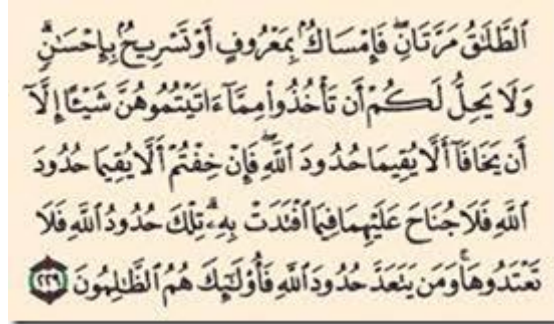 ٱلطَّلَٰقُ مَرَّتَانِۖ فَإِمۡسَاكُۢ بِمَعۡرُوفٍ أَوۡ تَسۡرِيحُۢ بِإِحۡسَٰنٖۗ
وَلَا يَحِلُّ لَكُمۡ أَن تَأۡخُذُواْ مِمَّآ ءَاتَيۡتُمُوهُنَّ شَيۡـًٔا إِلَّآ
أَن يَخَافَآ أَلَّا يُقِيمَا حُدُودَ ٱللَّهِۖ فَإِنۡ خِفۡتُمۡ أَلَّا يُقِيمَا حُدُودَ
ٱللَّهِ فَلَا جُنَاحَ عَلَيۡهِمَا فِيمَا ٱفۡتَدَتۡ بِهِۦۗ تِلۡكَ حُدُودُ ٱللَّهِ فَلَا
تَعۡتَدُوهَاۚ وَمَن يَتَعَدَّ حُدُودَ ٱللَّهِ فَأُوْلَٰٓئِكَ هُمُ ٱلظَّٰلِمُونَ ٢٢٩